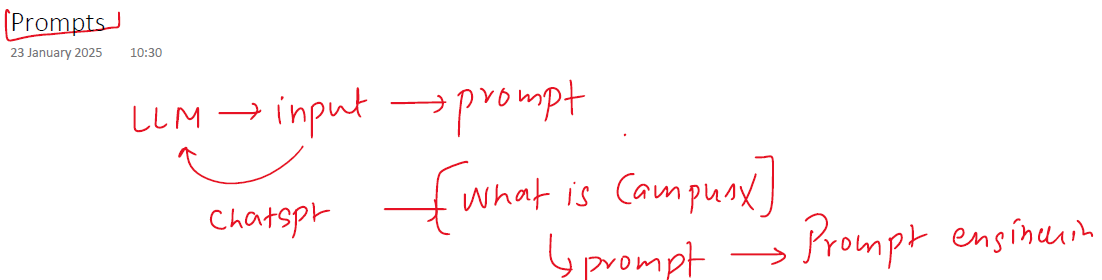 Prompts
23 January 2025 10:30
LLM → input → prompt
Chatgpt — [What is CampusX]
↳ prompt → Prompt engineerin